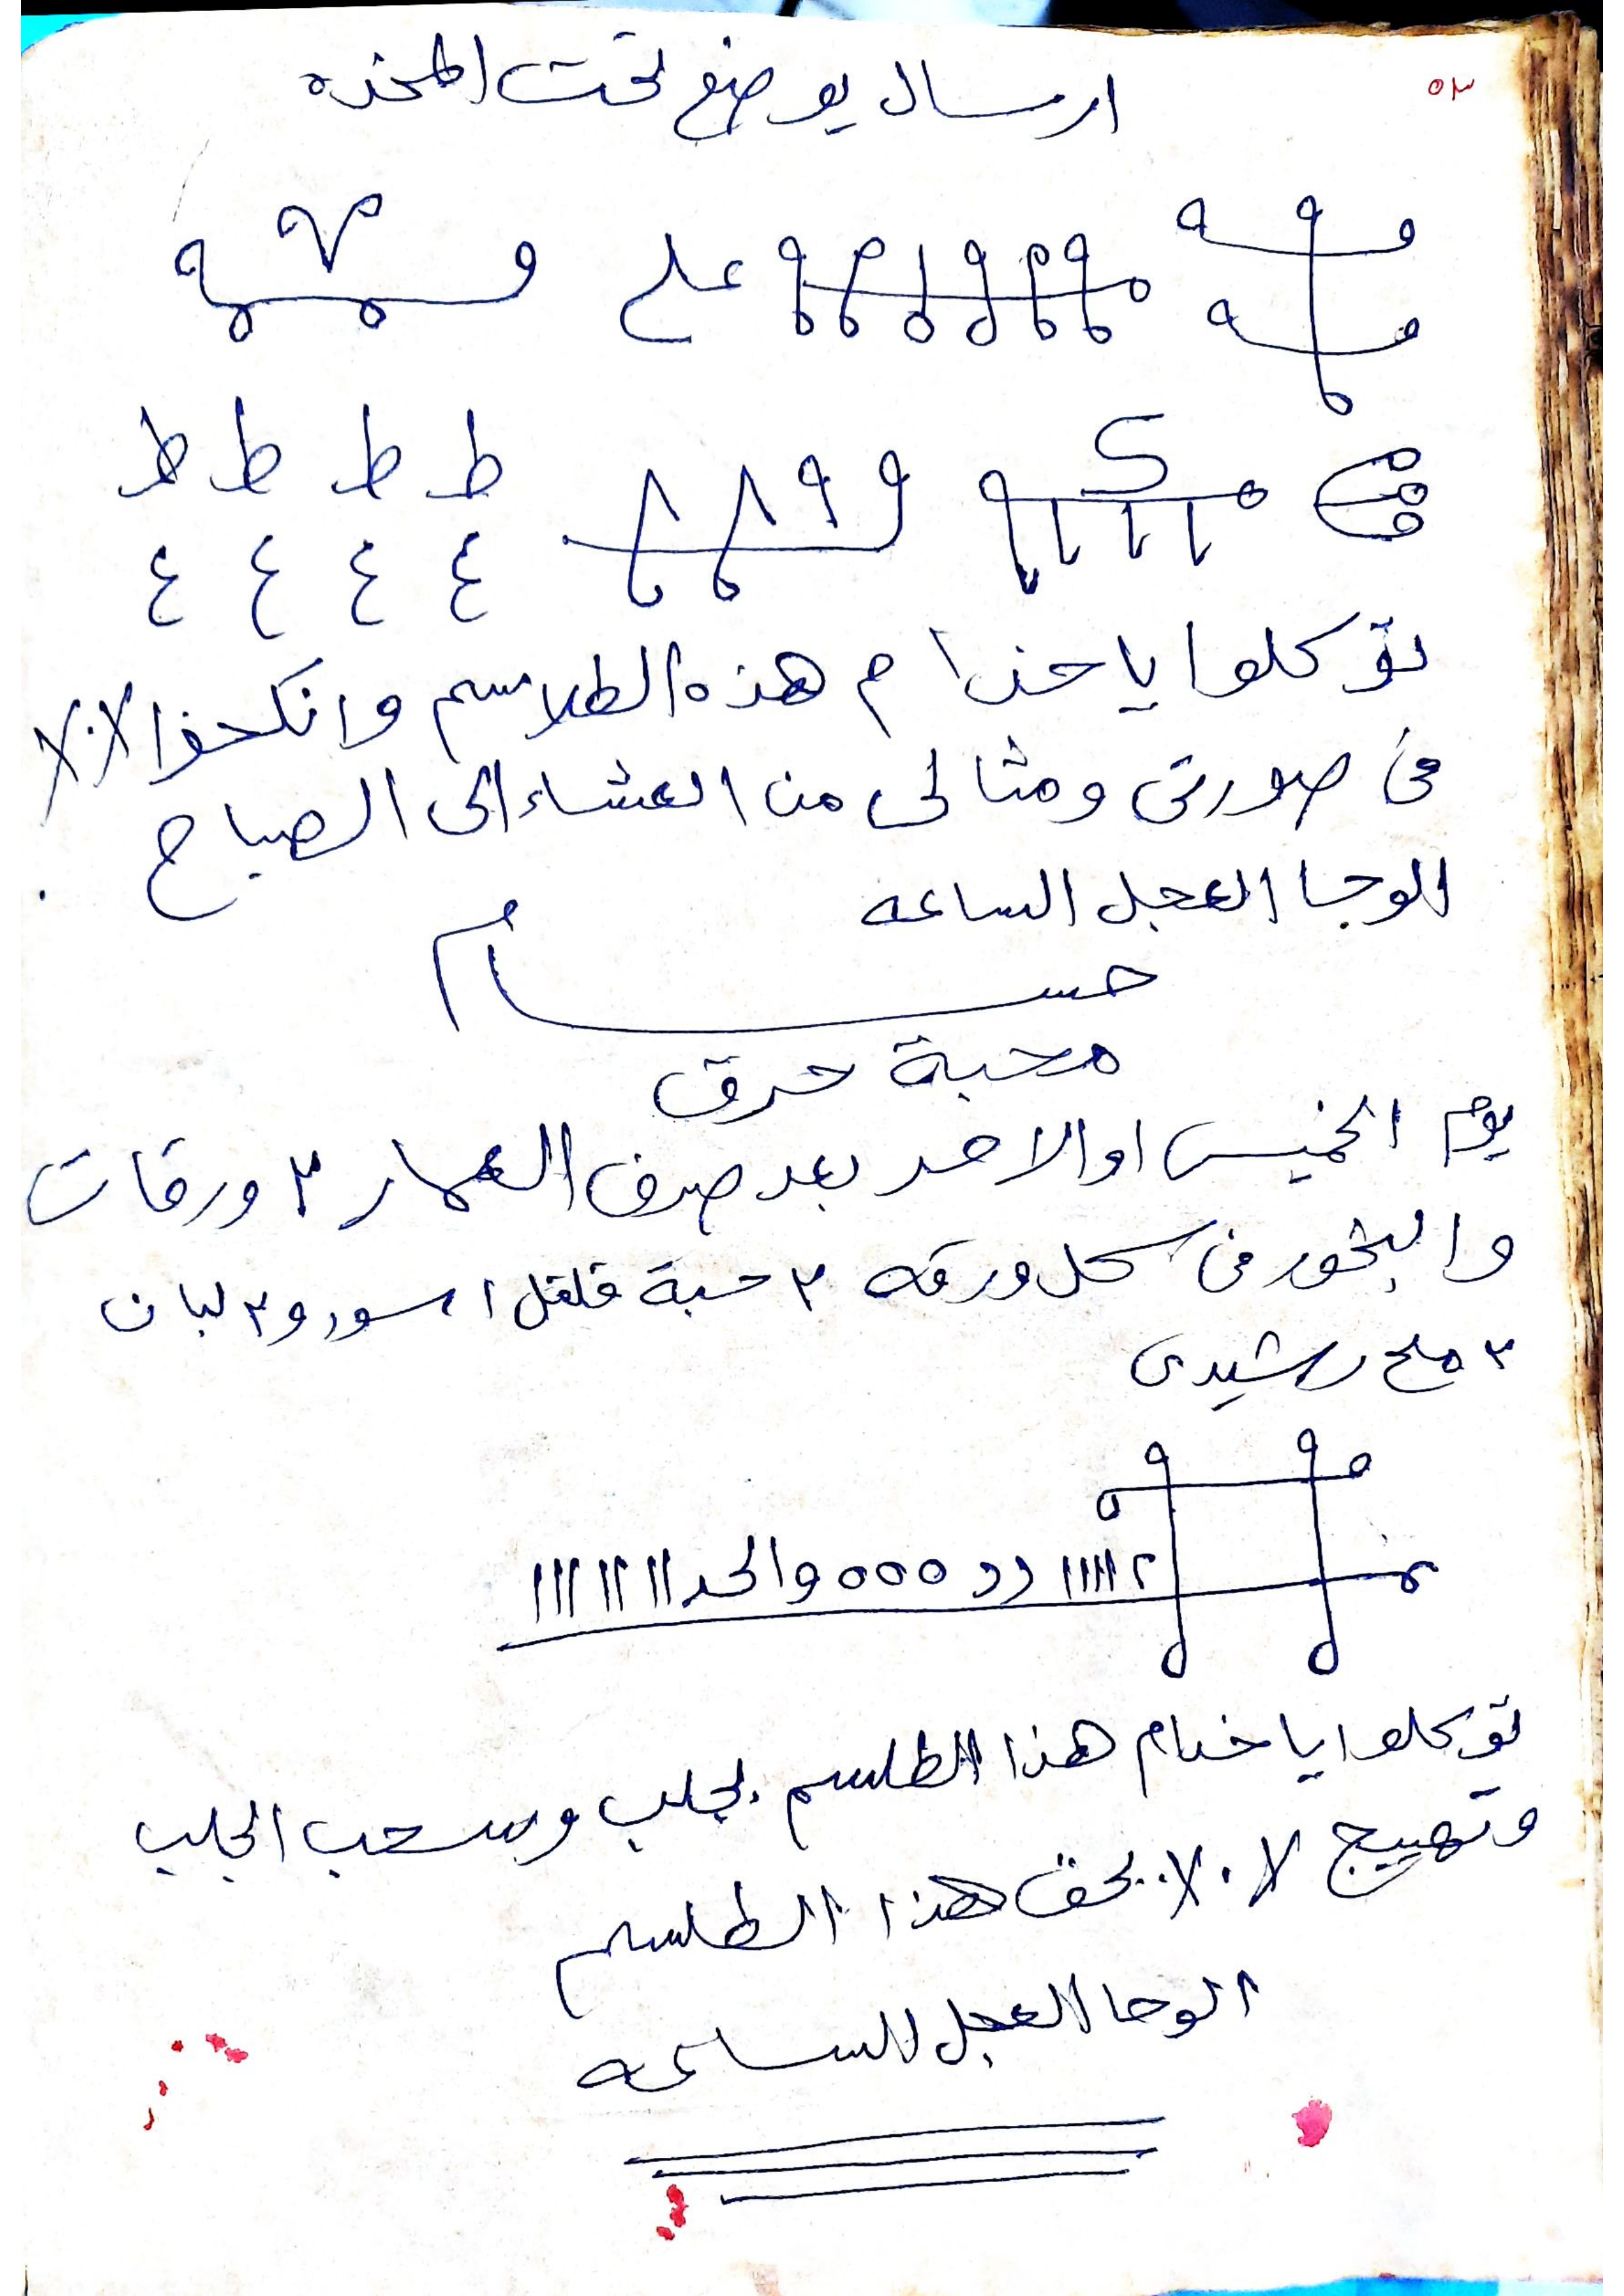 ٥٣
ارسال يوضع تحت المخده
على
ط ط ط ط
ع ع ع ع
توكلوا يا خدام هذه الطلاسم وانكحوا
فى صورتى ومثالى من العشاء الى الصباح
الوحا العجل الساعه
حسام
محبة حرق
يوم الخميس او الاحد بعد صرف العمار ٣ ورقات
والبخور فى كل ورقه ٣ حبة فلفل اسود و٣ لبان
٣ ملح رشيدى
توكلوا يا خدام هذا الطلسم بجلب وسحب الجلب
وتهييج بحق هذا الطلسم
الوحا العجل الساعه